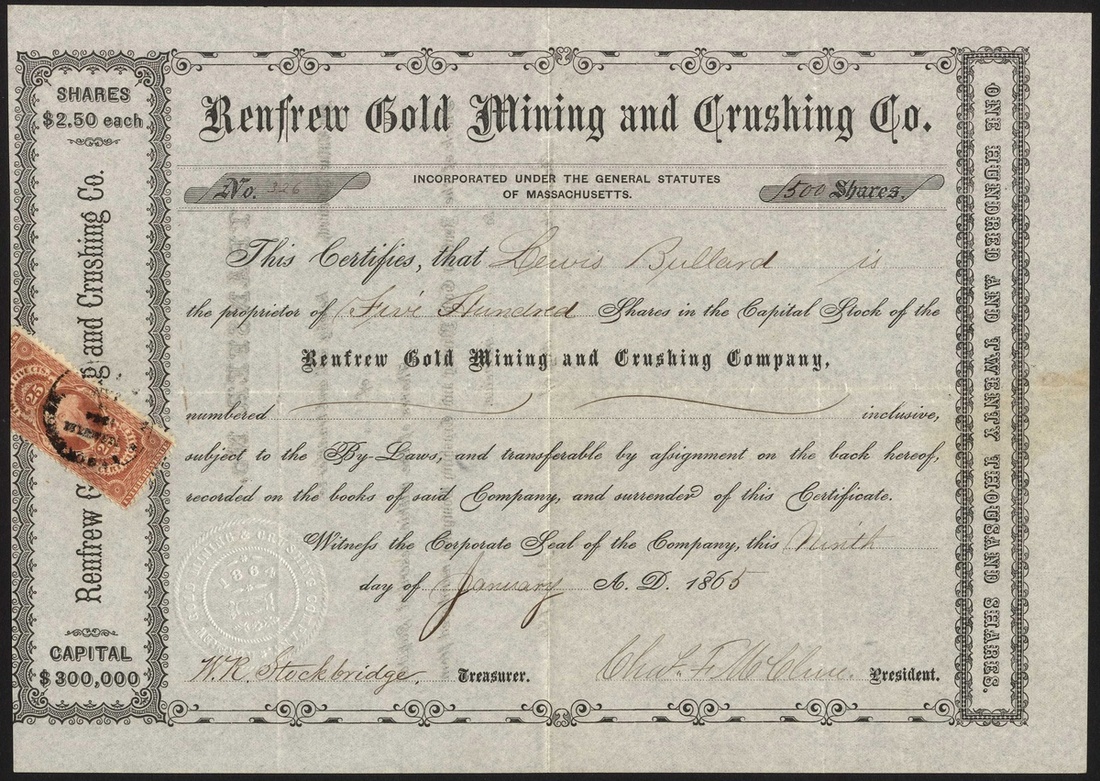 SHARES
$2.50 each
Renfrew Gold Mining and Crushing Co.
CAPITAL
$300,000
Renfrew Gold Mining and Crushing Co.
No. 326
INCORPORATED UNDER THE GENERAL STATUTES
OF MASSACHUSETTS.
500 Shares.
This Certifies, that Lewis Bullard is
the proprietor of Five Hundred Shares in the Capital Stock of the
Renfrew Gold Mining and Crushing Company,
numbered inclusive,
subject to the By-Laws, and transferable by assignment on the back hereof,
recorded on the books of said Company, and surrender of this Certificate.
Witness the Corporate Seal of the Company, this Ninth
day of January A. D. 1865
W. R. Stockbridge, Treasurer.
Chas. F. McClure. President.
ONE HUNDRED AND TWENTY THOUSAND SHARES.
25
1864